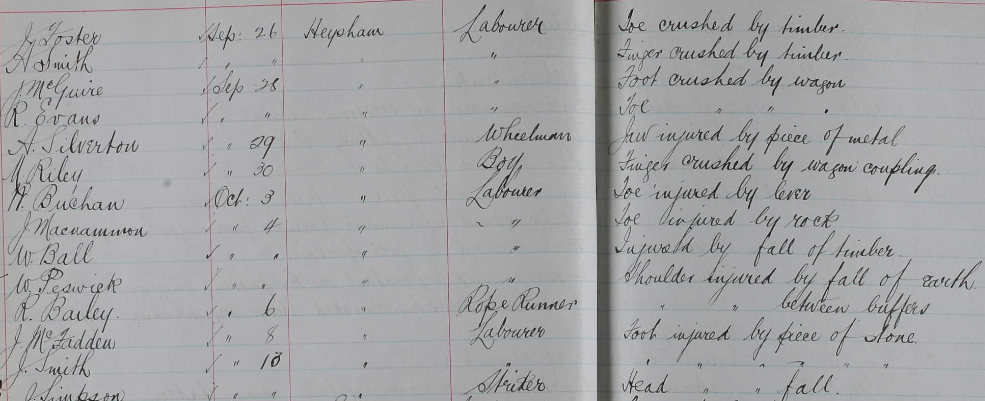 J Foster Sep: 26 Heysham Labourer Toe crushed by timber.
A Smith " " " " Finger crushed by timber.
J. McGuire Sep 28 " " Foot crushed by wagon
R. Evans " " " " Toe " " "
A. Silverton " 29 " Wheelman Jaw injured by piece of metal
Riley " 30 " Boy Finger crushed by wagon coupling.
Buchan Oct: 3 " Labourer Toe injured by lever
J. Macnammon " 4 " " Toe injured by rock
W. Ball " " " " Injured by fall of timber.
W. Peswick " " " " Shoulder injured by fall of earth
R. Bailey. " 6 " Rope Runner " " between buffers
J. McFadden " 8 " Labourer Foot injured by piece of stone
J. Smith " 10 " " " " " " "
J. Simpson " " " Striker Head " " fall.